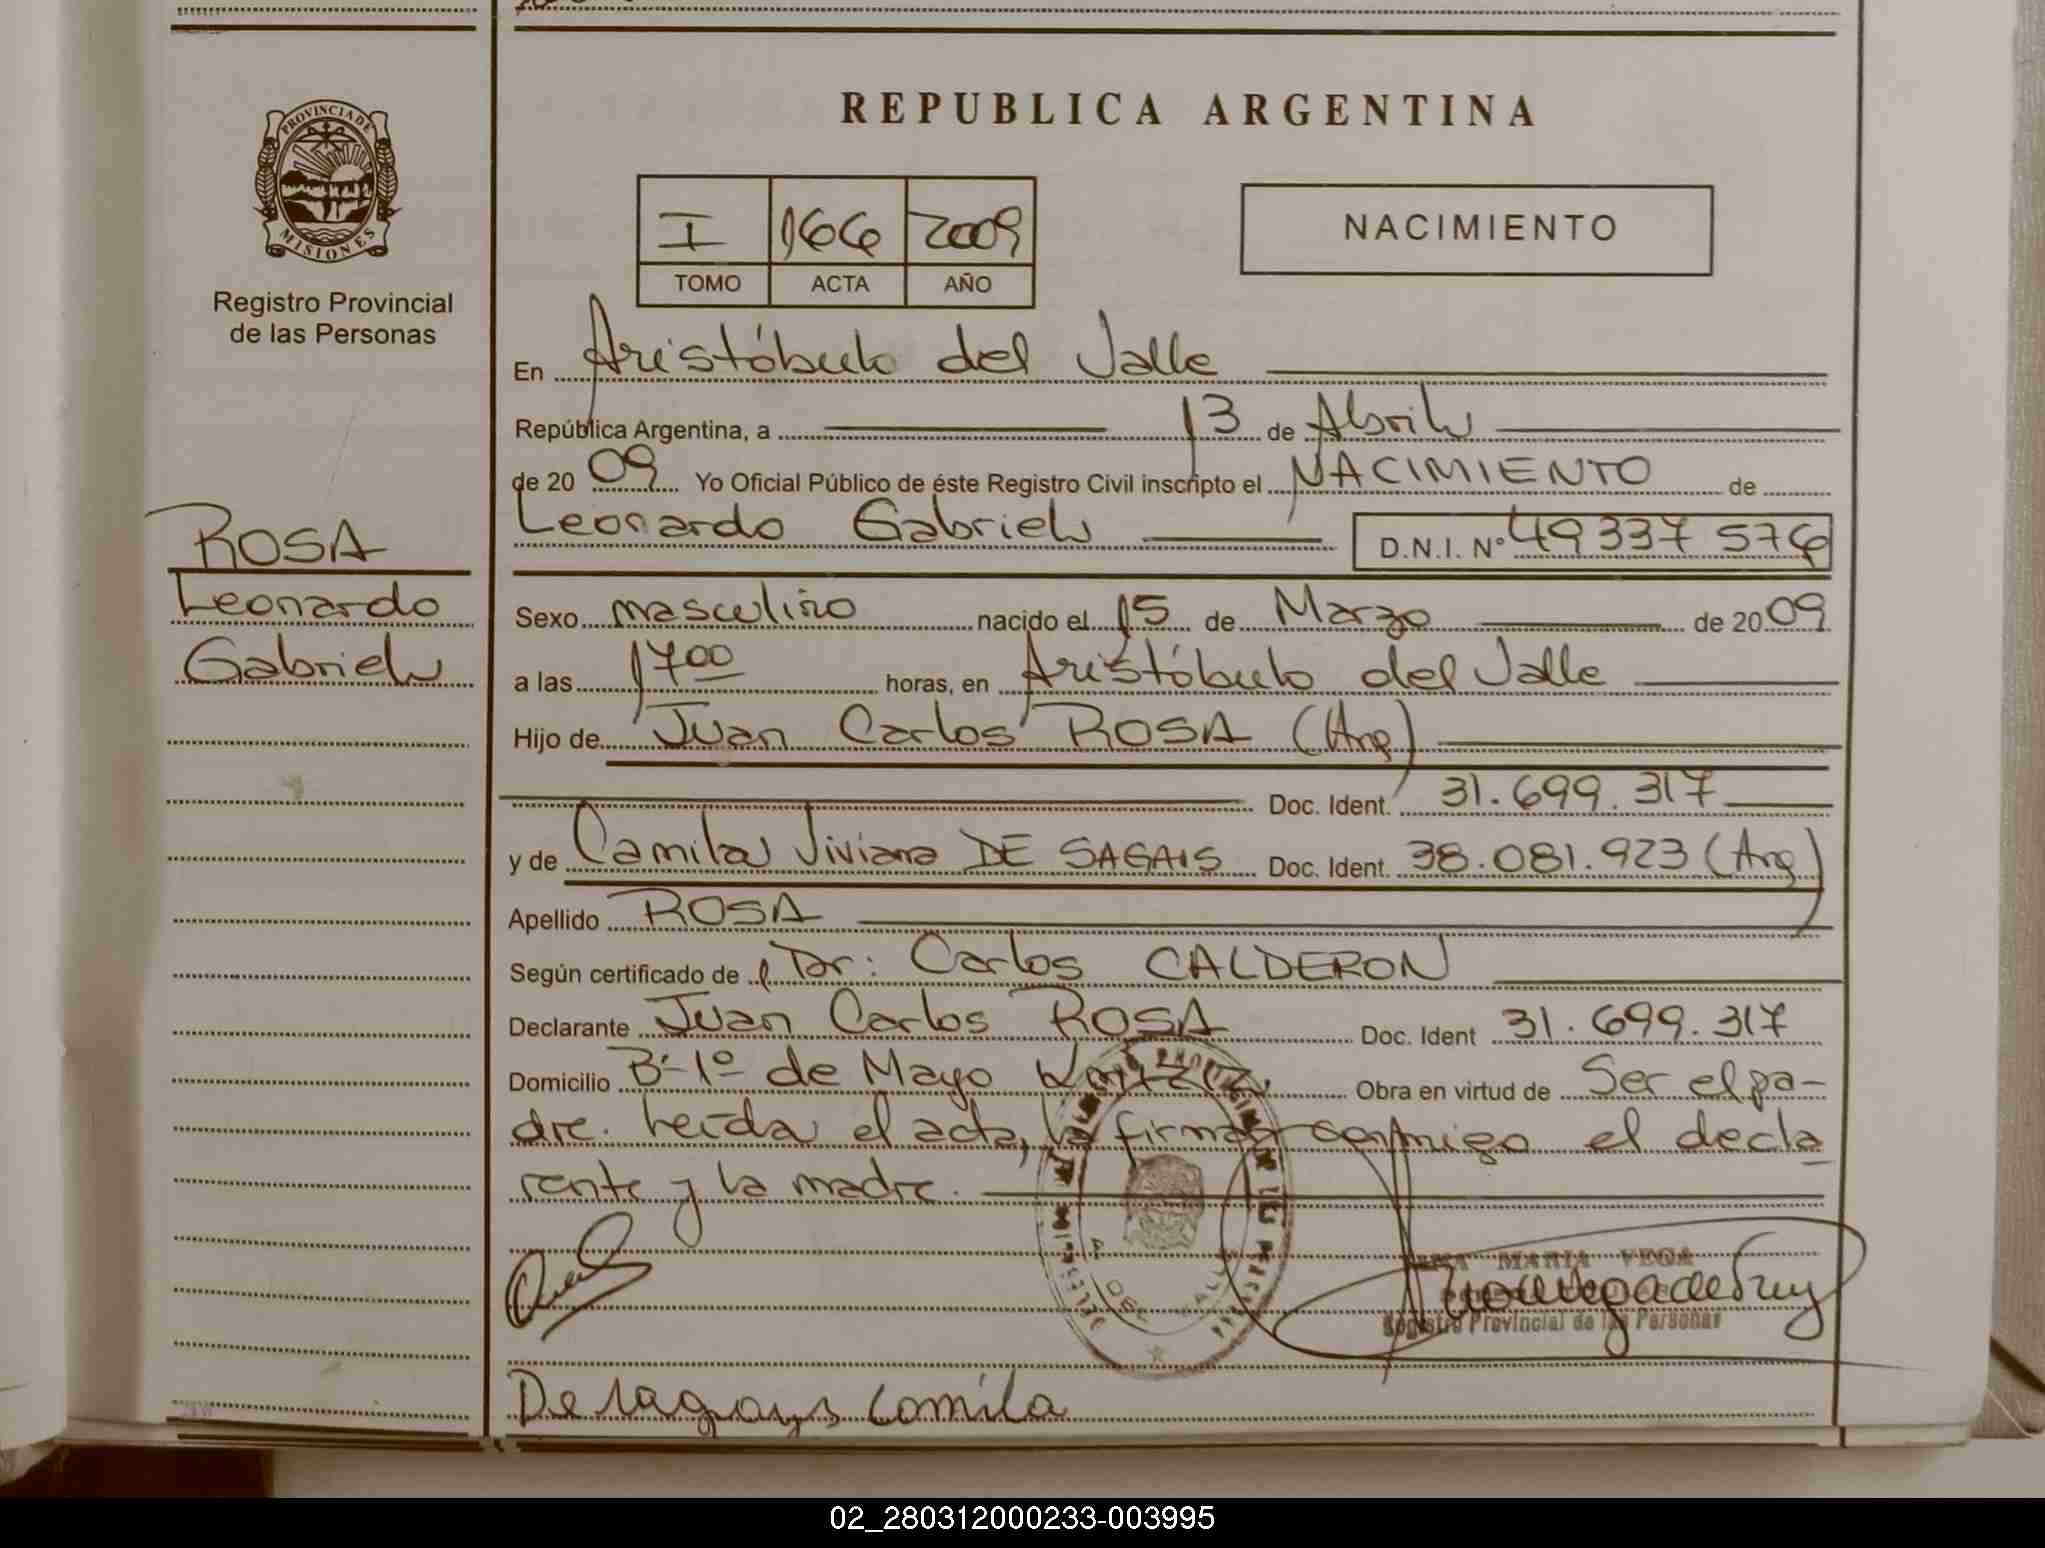 PROVINCIA DE
MISIONES
Registro Provincial
de las Personas
ROSA
Leonardo
Gabriel
REPUBLICA ARGENTINA
I 166 2009
TOMO ACTA AÑO
NACIMIENTO
En Aristóbulo del Valle
República Argentina, a 13 de Abril
de 2009 Yo Oficial Público de éste Registro Civil inscripto el NACIMIENTO de
Leonardo Gabriel D.N.I. N° 49337576
Sexo masculino nacido el 15 de Marzo de 2009
a las 17 00 horas, en Aristóbulo del Valle
Hijo de Juan Carlos ROSA (Arg)
Doc. Ident. 31.699.317
y de Camila Viviana DE SAGAIS Doc. Ident. 38.081.923 (Arg)
Apellido ROSA
Según certificado de l Dr: Carlos CALDERON
Declarante Juan Carlos ROSA Doc. Ident 31.699.317
Domicilio B-1º de Mayo Obra en virtud de Ser el pa-
dre. Leída el acta, la firma conmigo el decla
rante y la madre.
MARIA VEGA
Registro Provincial de las Personas
Camila
02_280312000233-003995